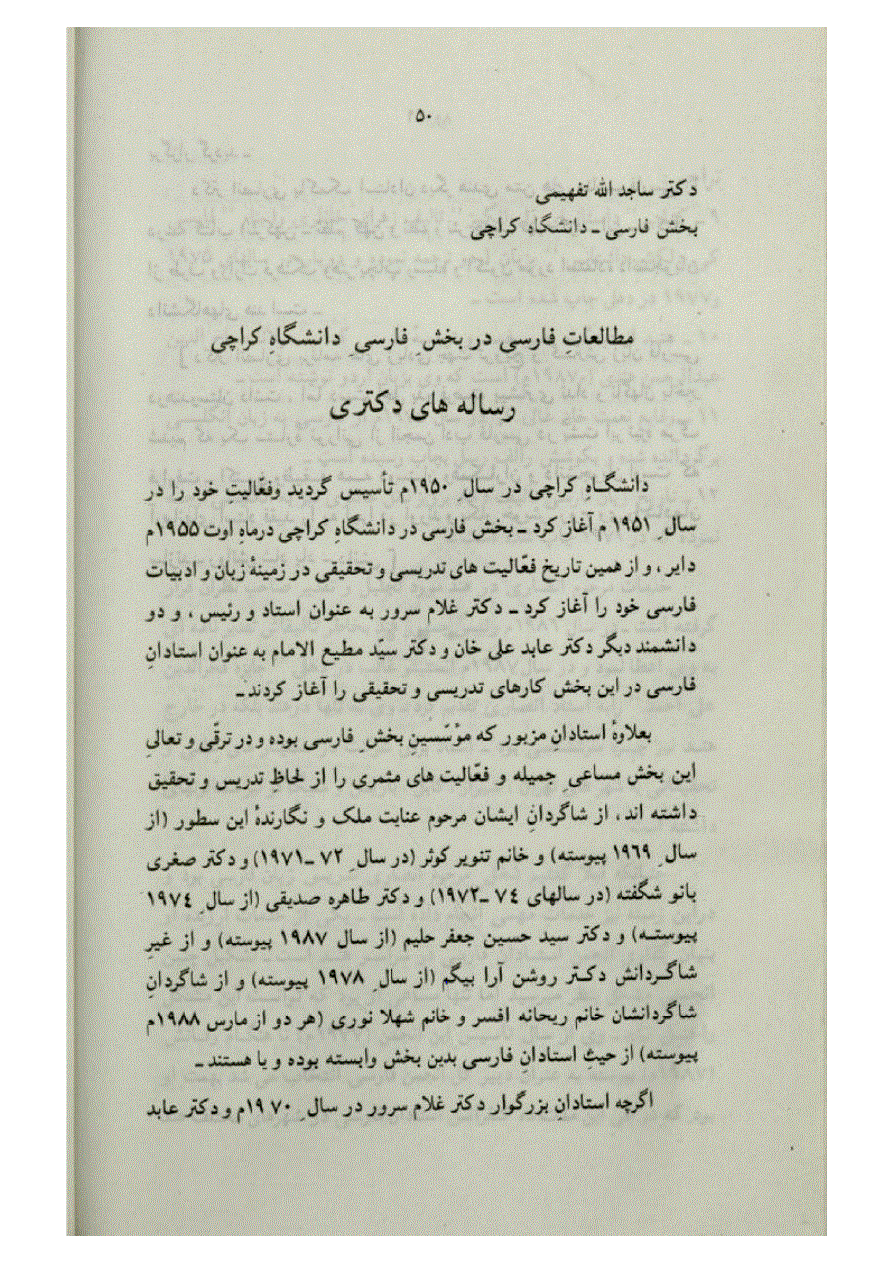 ۵۰
دکتر ساجد الله تفهیمی
بخش فارسی ـ دانشگاه کراچی
مطالعاتِ فارسی در بخشِ فارسی دانشگاهِ کراچی
رساله های دکتری
دانشگاهِ کراچی در سالِ ۱۹۵۰م تأسیس گردید وفعّالیتِ خود را در
سالِ ۱۹۵۱ م آغاز کرد ـ بخش فارسی در دانشگاهِ کراچی درماهِ اوت ۱۹۵۵م
دایر ، و از همین تاریخ فعّالیت های تدریسی و تحقیقی در زمینهٔ زبان و ادبیات
فارسی خود را آغاز کرد ـ دکتر غلام سرور به عنوان استاد و رئیس ، و دو
دانشمند دیگر دکتر عابد علی خان و دکتر سیّد مطیع الامام به عنوان استادانِ
فارسی در این بخش کارهای تدریسی و تحقیقی را آغاز کردند ـ
بعلاوهٔ استادانِ مزبور که مؤسّسینِ بخشِ فارسی بوده و در ترقّی و تعالیِ
این بخش مساعیِ جمیله و فعّالیت های مثمری را از لحاظِ تدریس و تحقیق
داشته اند ، از شاگردانِ ایشان مرحوم عنایت ملک و نگارندهٔ این سطور (از
سالِ ۱۹۶۹ پیوسته) و خانم تنویر کوثر (در سالِ ۷۲ ـ۱۹۷۱) و دکتر صغری
بانو شگفته (در سالهای ۷٤ ـ۱۹۷۲) و دکتر طاهره صدیقی (از سالِ ۱۹۷٤
پیوسته) و دکتر سید حسین جعفر حلیم (از سال ۱۹۸۷ پیوسته) و از غیرِ
شاگردانش دکتر روشن آرا بیگم (از سالِ ۱۹۷۸ پیوسته) و از شاگردانِ
شاگردانشان خانم ریحانه افسر و خانم شهلا نوری (هر دو از مارس ۱۹۸۸م
پیوسته) از حیثِ استادانِ فارسی بدین بخش وابسته بوده و یا هستند ـ
اگرچه استادانِ بزرگوار دکتر غلام سرور در سالِ ۱۹۷۰م و دکتر عابد